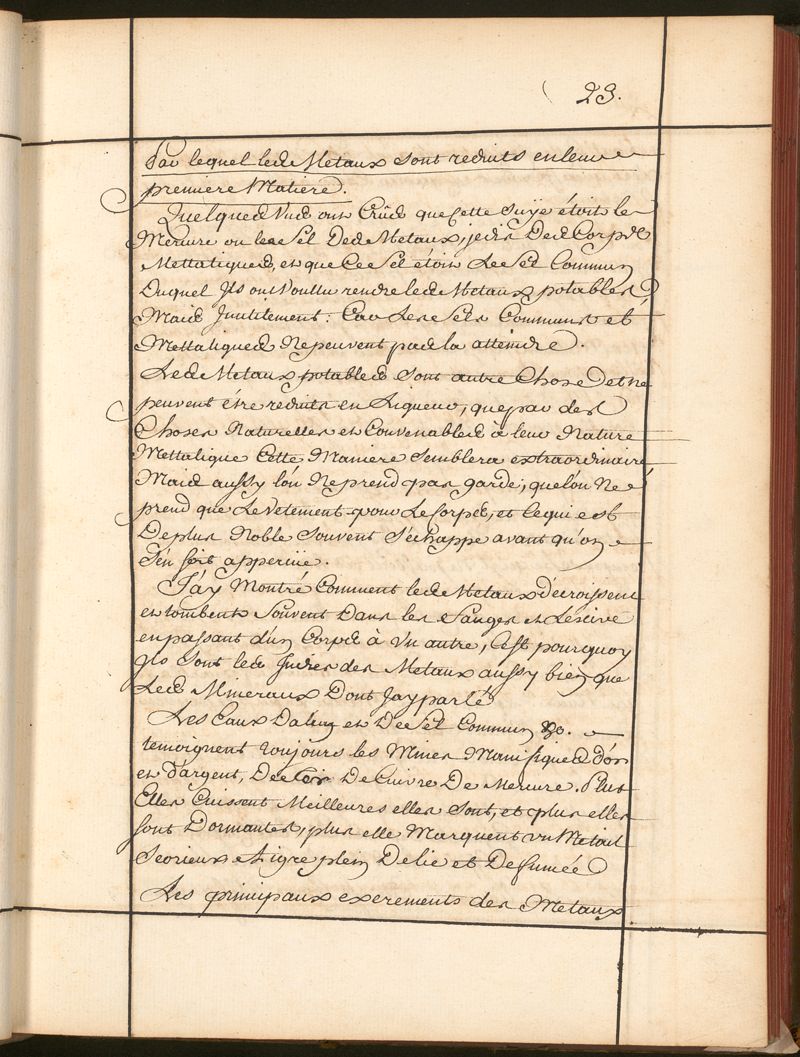 23.
Par lequel les Metaux sont reduits en leur
premiere Matiere.
Quelques Uns ont Crûs que Cette Suÿe étoit le
Mercure ou le Sel Des Metaux, je dis Des Corps
Mettaliques, et que Ce Sel étoit Le Sel Commun
Duquel Ils ont Voullu rendre les Metaux potables
Mais Inutilement: Car Les Sels Communs et
Mettaliques Ne peuvent pas la atteindre.
Les Metaux potables sont autre Chose et ne
peuvent être reduits en Liqueur, que par des
Choses Naturelles et Convenables à leur Nature
Mettalique Cette Maniere Semblera extraordinaire
Mais aussy l'on Ne prend pas garde, que l'on Ne
prend que Le Vetement pour Le Corps, et Ce qui est
De plus Noble Souvent S'échappe avant qu'on
S'en soit apperçüe.
J'ay Montré Comment les Metaux décroissent
et tombent Souvent Dans les Fanges et Lescive
en passant d'un Corps à Vn autre, C'est pourquoy
Ils sont les Indices des Metaux aussy bien que
Les Mineraux Dont J'ay parlé
Les Eaux D'alun et De Sel Commun &c.
temoignent toujours les Mines Manifiques d'or
et d'argent, De Cuivre De Mercure. Plus
Elles Cuisent Meilleures elles Sont, et plus elles
sont Dormantes, plus elle Marquent vn Metail
Scorieux et Aigre plein De lie et De fumée
Les principaux excrements des Metaux